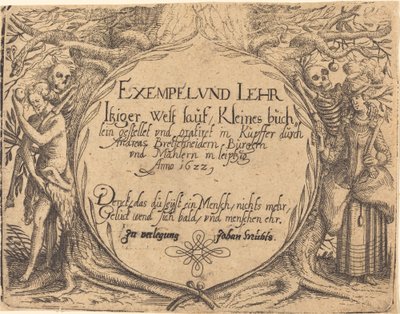 EXEMPEL UND LEHR
Itziger Welt lauf, Kleines büch
lein gestellet und gratiret in Kupffer durch
Andreas Bretschneidern, Bürgern
und Mahlern in leipzig
Anno 1622,
Denck das du seyst ein Mensch, nichts mehr,
Gelück wend sich bald, vnd menschen ehr.
zu verlegung Johan